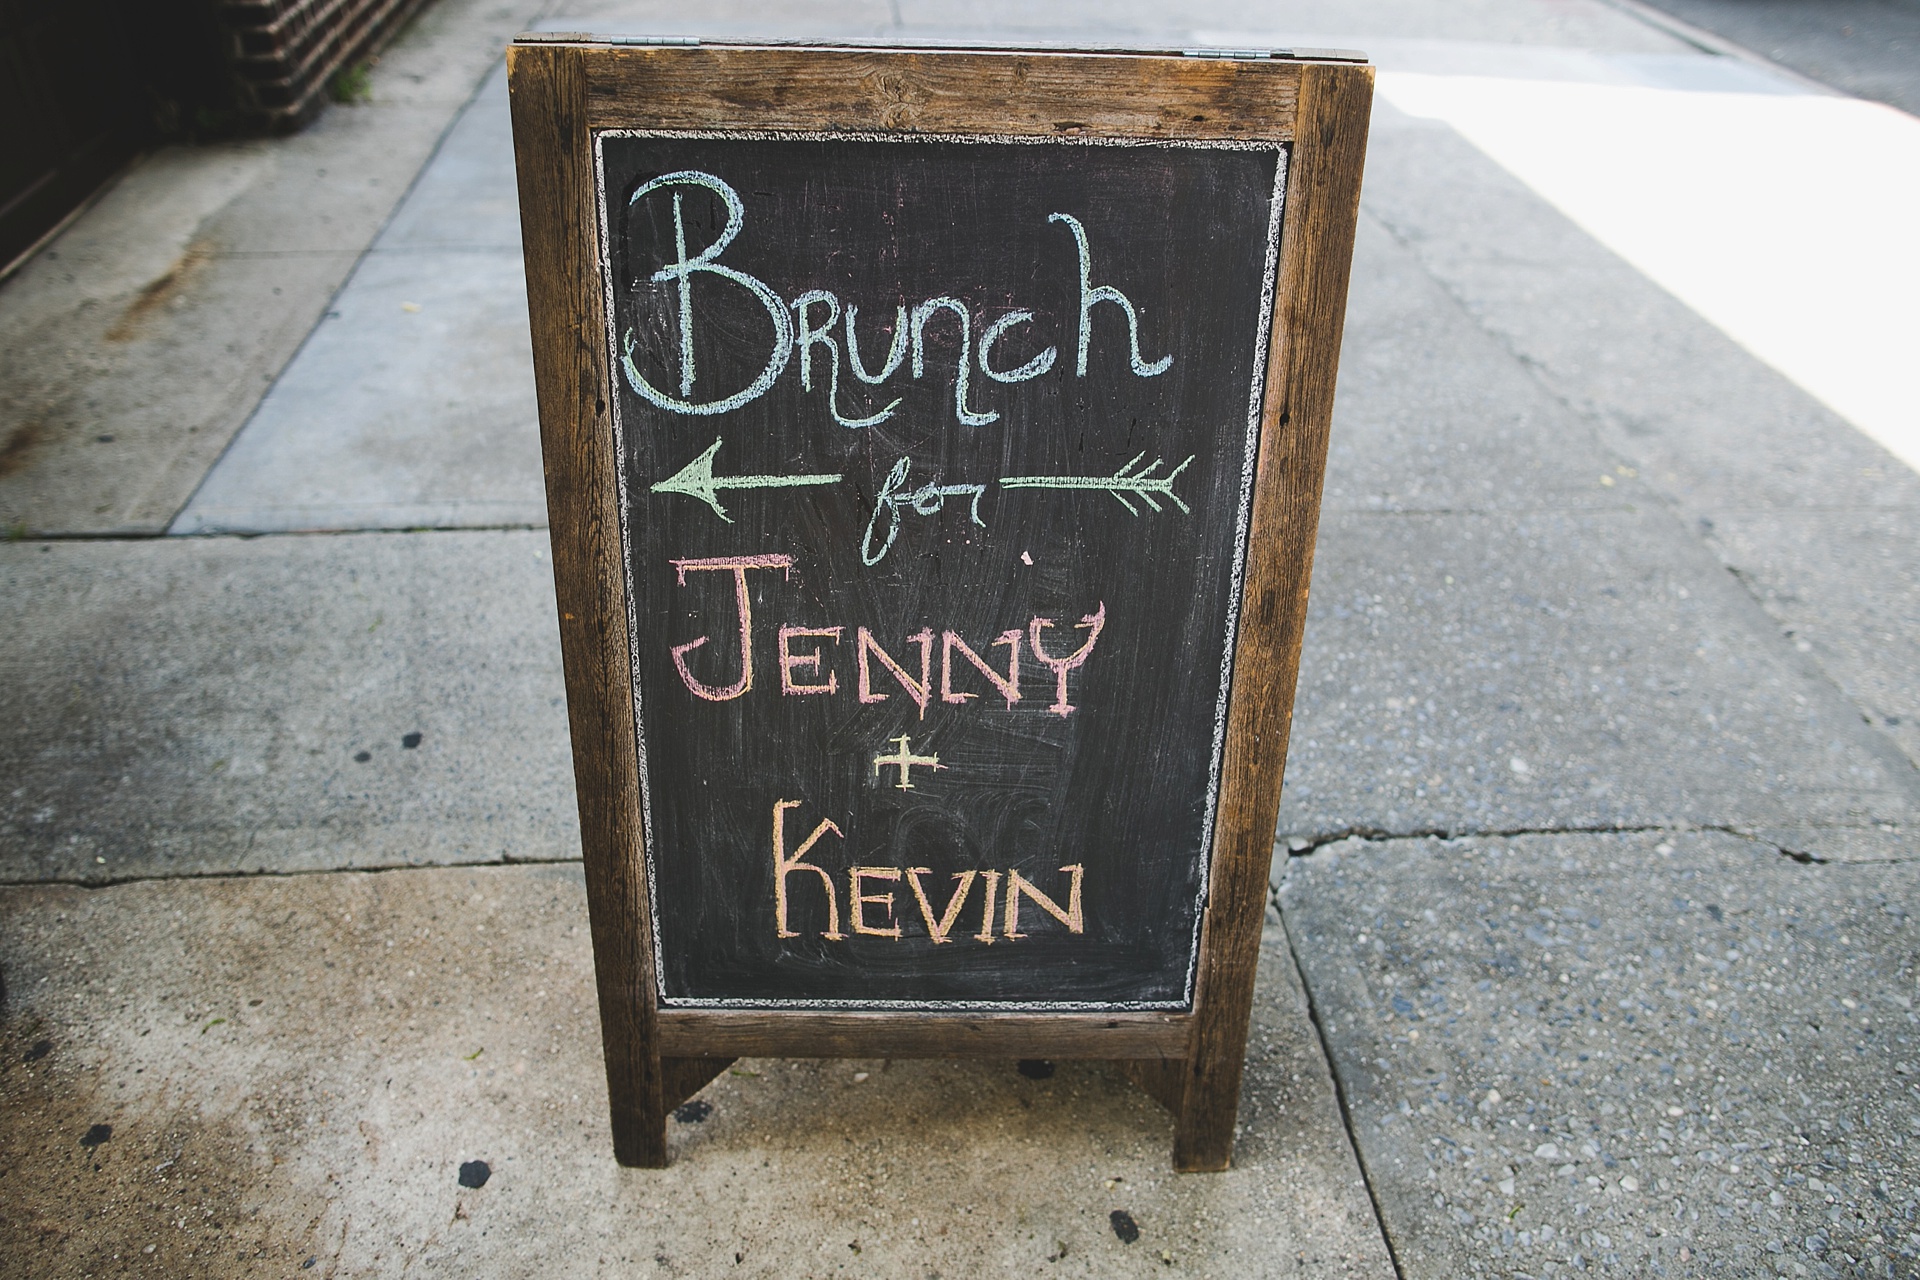 Brunch
for
JENNY
+
KEVIN